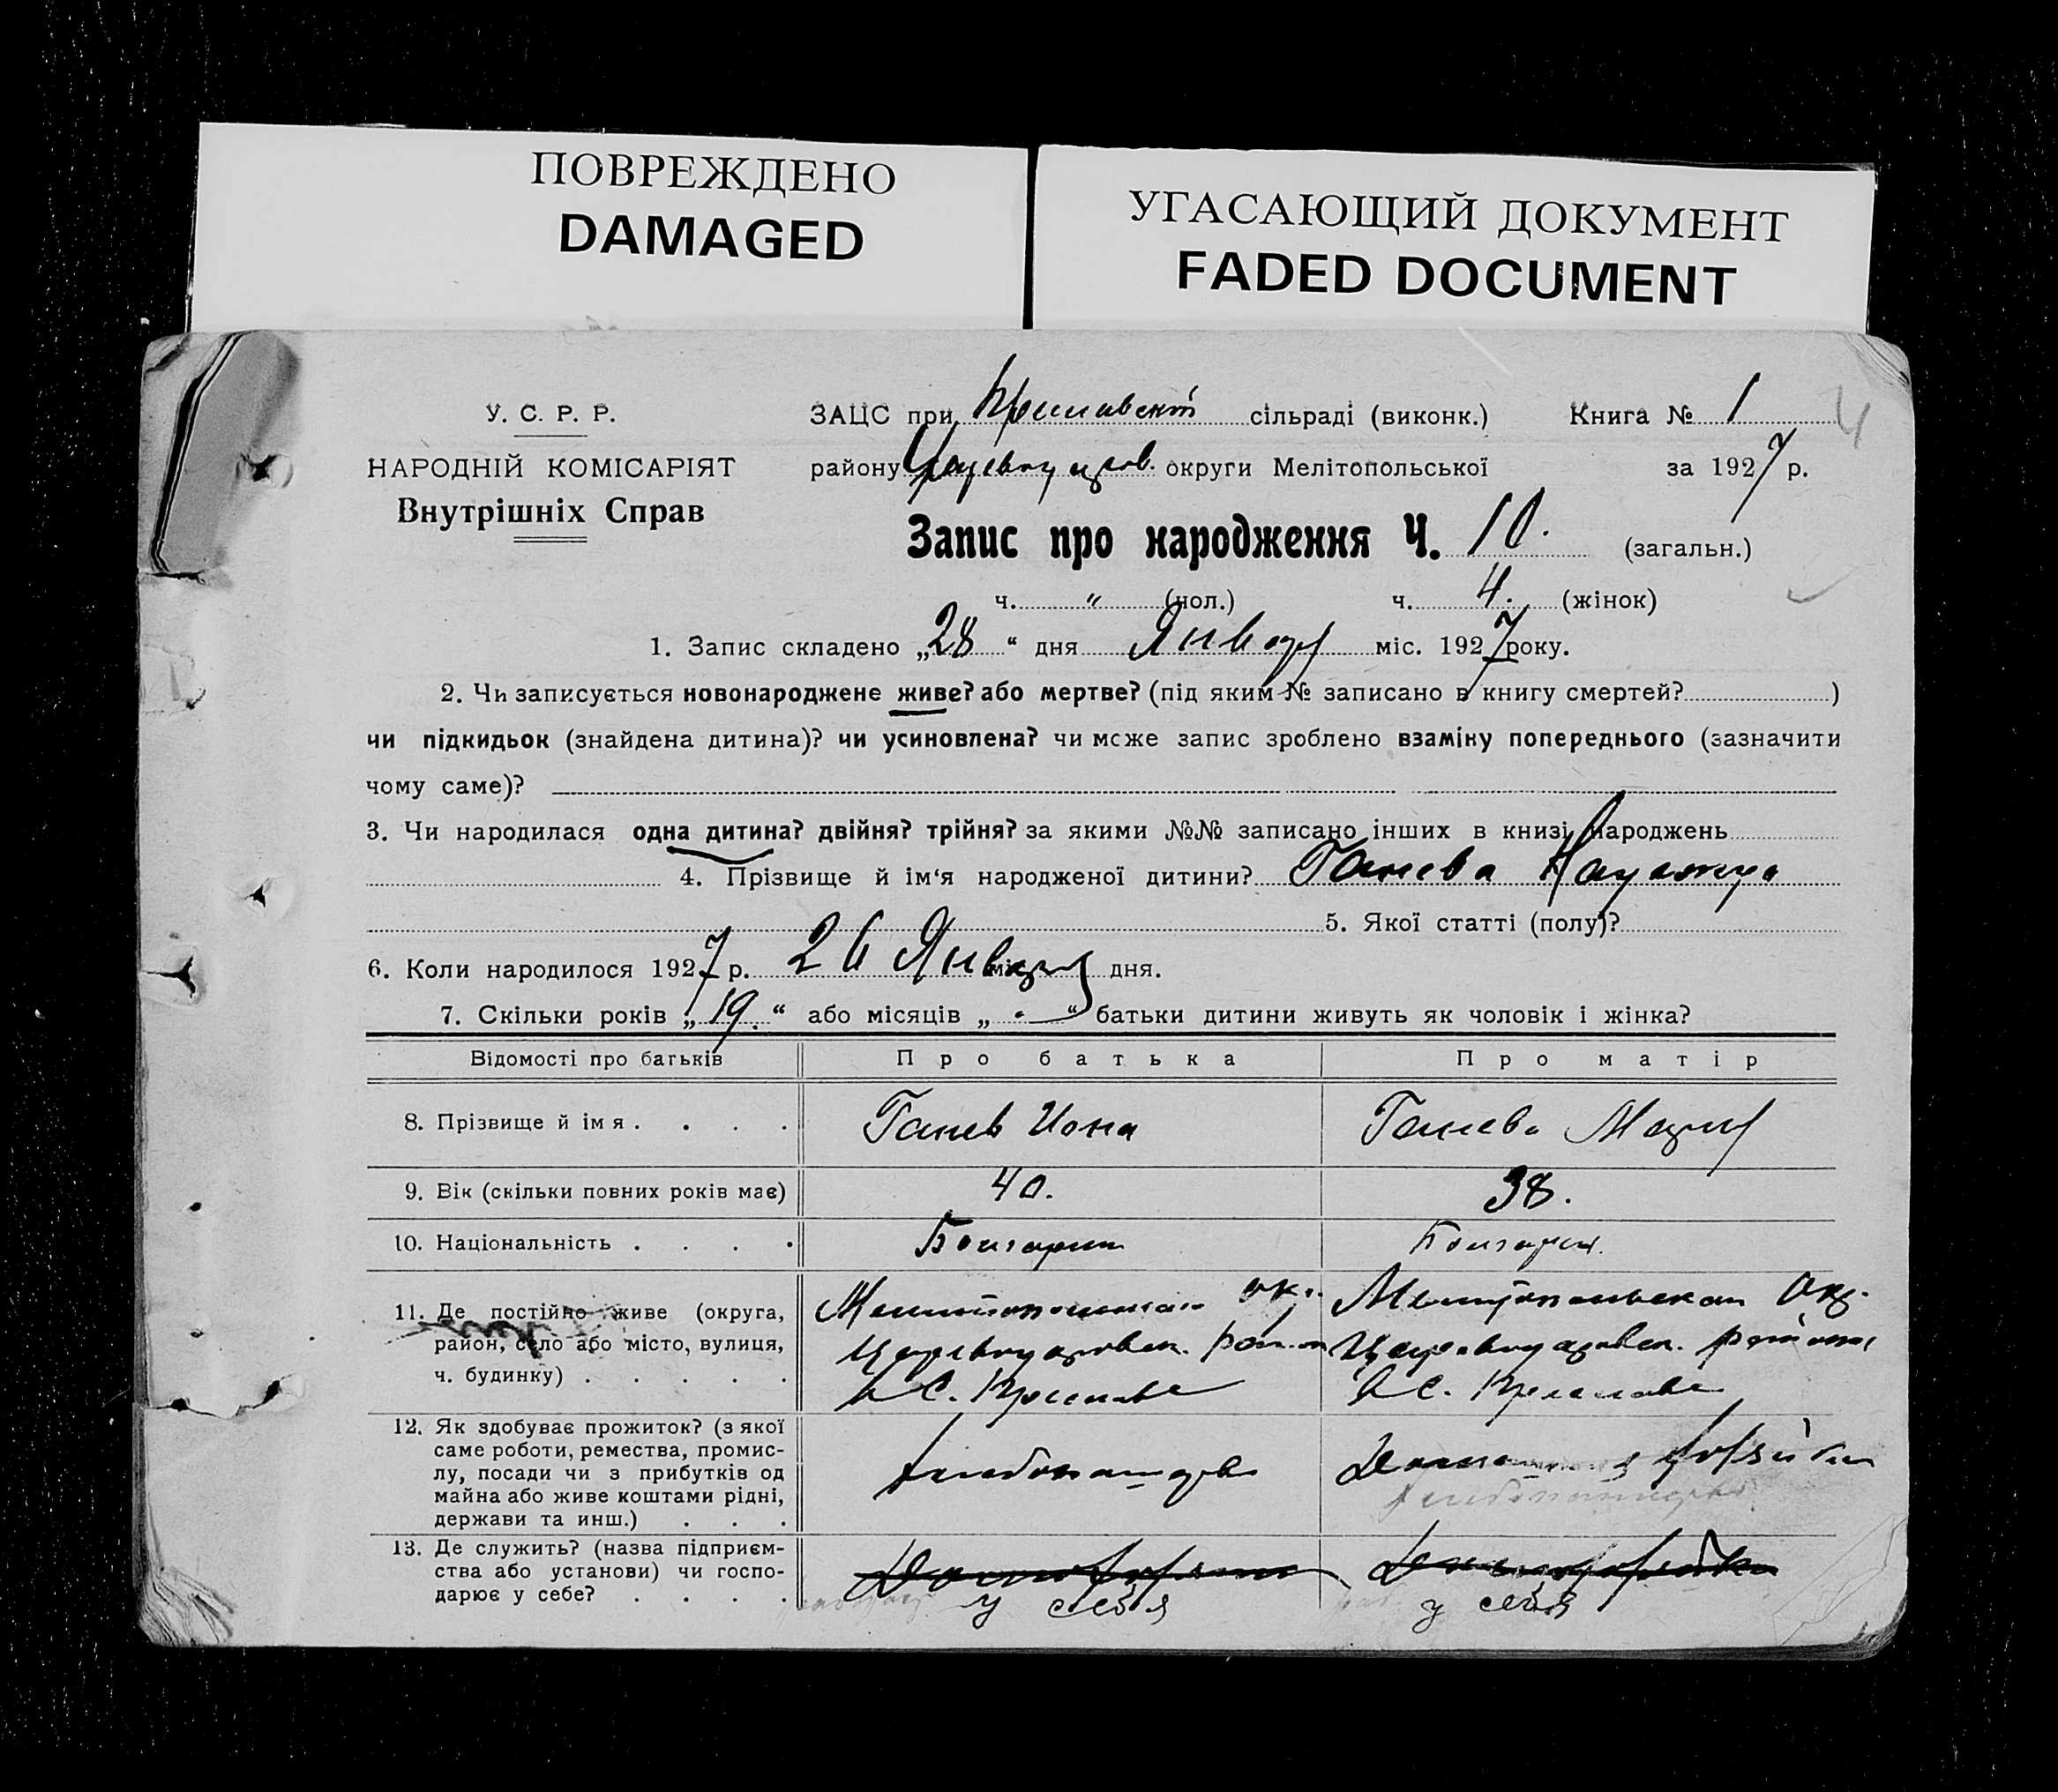 ПОВРЕЖДЕНО
DAMAGED
УГАСАЮЩИЙ ДОКУМЕНТ
FADED DOCUMENT
У. С. Р. Р.
НАРОДНІЙ КОМІСАРІЯТ
Внутрішніх Справ
ЗАЦС при сільраді (виконк.) Книга № 1
4
району округи Мелітопольської за 1927 р.
Запис про народження Ч. 10. (загальн.)
ч. " (чол.) ч. 4. (жінок)
1. Запис складено „28“ дня Января міс. 1927 року.
2. Чи записується новонароджене живе? або мертве? (під яким № записано в книгу смертей? )
чи підкидьок (знайдена дитина)? чи усиновлена? чи може запис зроблено взаміну попереднього (зазначити
чому саме)?
3. Чи народилася одна дитина? двійня? трійня? за якими №№ записано інших в книзі народжень
4. Прізвище й ім‘я народженої дитини? Ганева
5. Якої статті (полу)?
6. Коли народилося 1927 р. 26 Января міс. дня.
7. Скільки років „19.“ або місяців „ - “ батьки дитини живуть як чоловік і жінка?
Відомості про батьків Про батька Про матір
8. Прізвище й імя . . . . Ганев Иона Ганева Мария
9. Вік (скільки повних років має) 40. 38.
10. Національність . . . . Болгарин Болгарка.
11. Де постійно живе (округа, Мелитопольская ок. Мелитопольская Окр.
район, село або місто, вулиця, Царевводаровск. район Царевводаровск. района
ч. будинку) . . . . . в С. в С.
12. Як здобуває прожиток? (з якої
саме роботи, ремества, промис-
лу, посади чи з прибутків од
майна або живе коштами рідні,
держави та инш.) . . .
хлебопашество
Домашняя хозяйка
хлебопашество
13. Де служить? (назва підприєм-
ства або установи) чи госпо-
дарює у себе? . . . .
у себя у себя